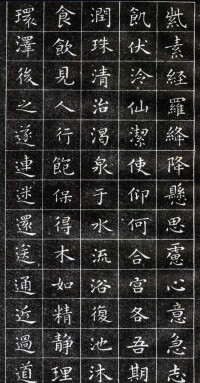 紫素経羅絳降懸思慮心意急志
飢伏冷仙潔使仰何合宮各吾期
潤珠清治渇泉于水流浴復池沐
食飲見人行飽保得木如精静理
環澤後之逆連迷還送通近過道